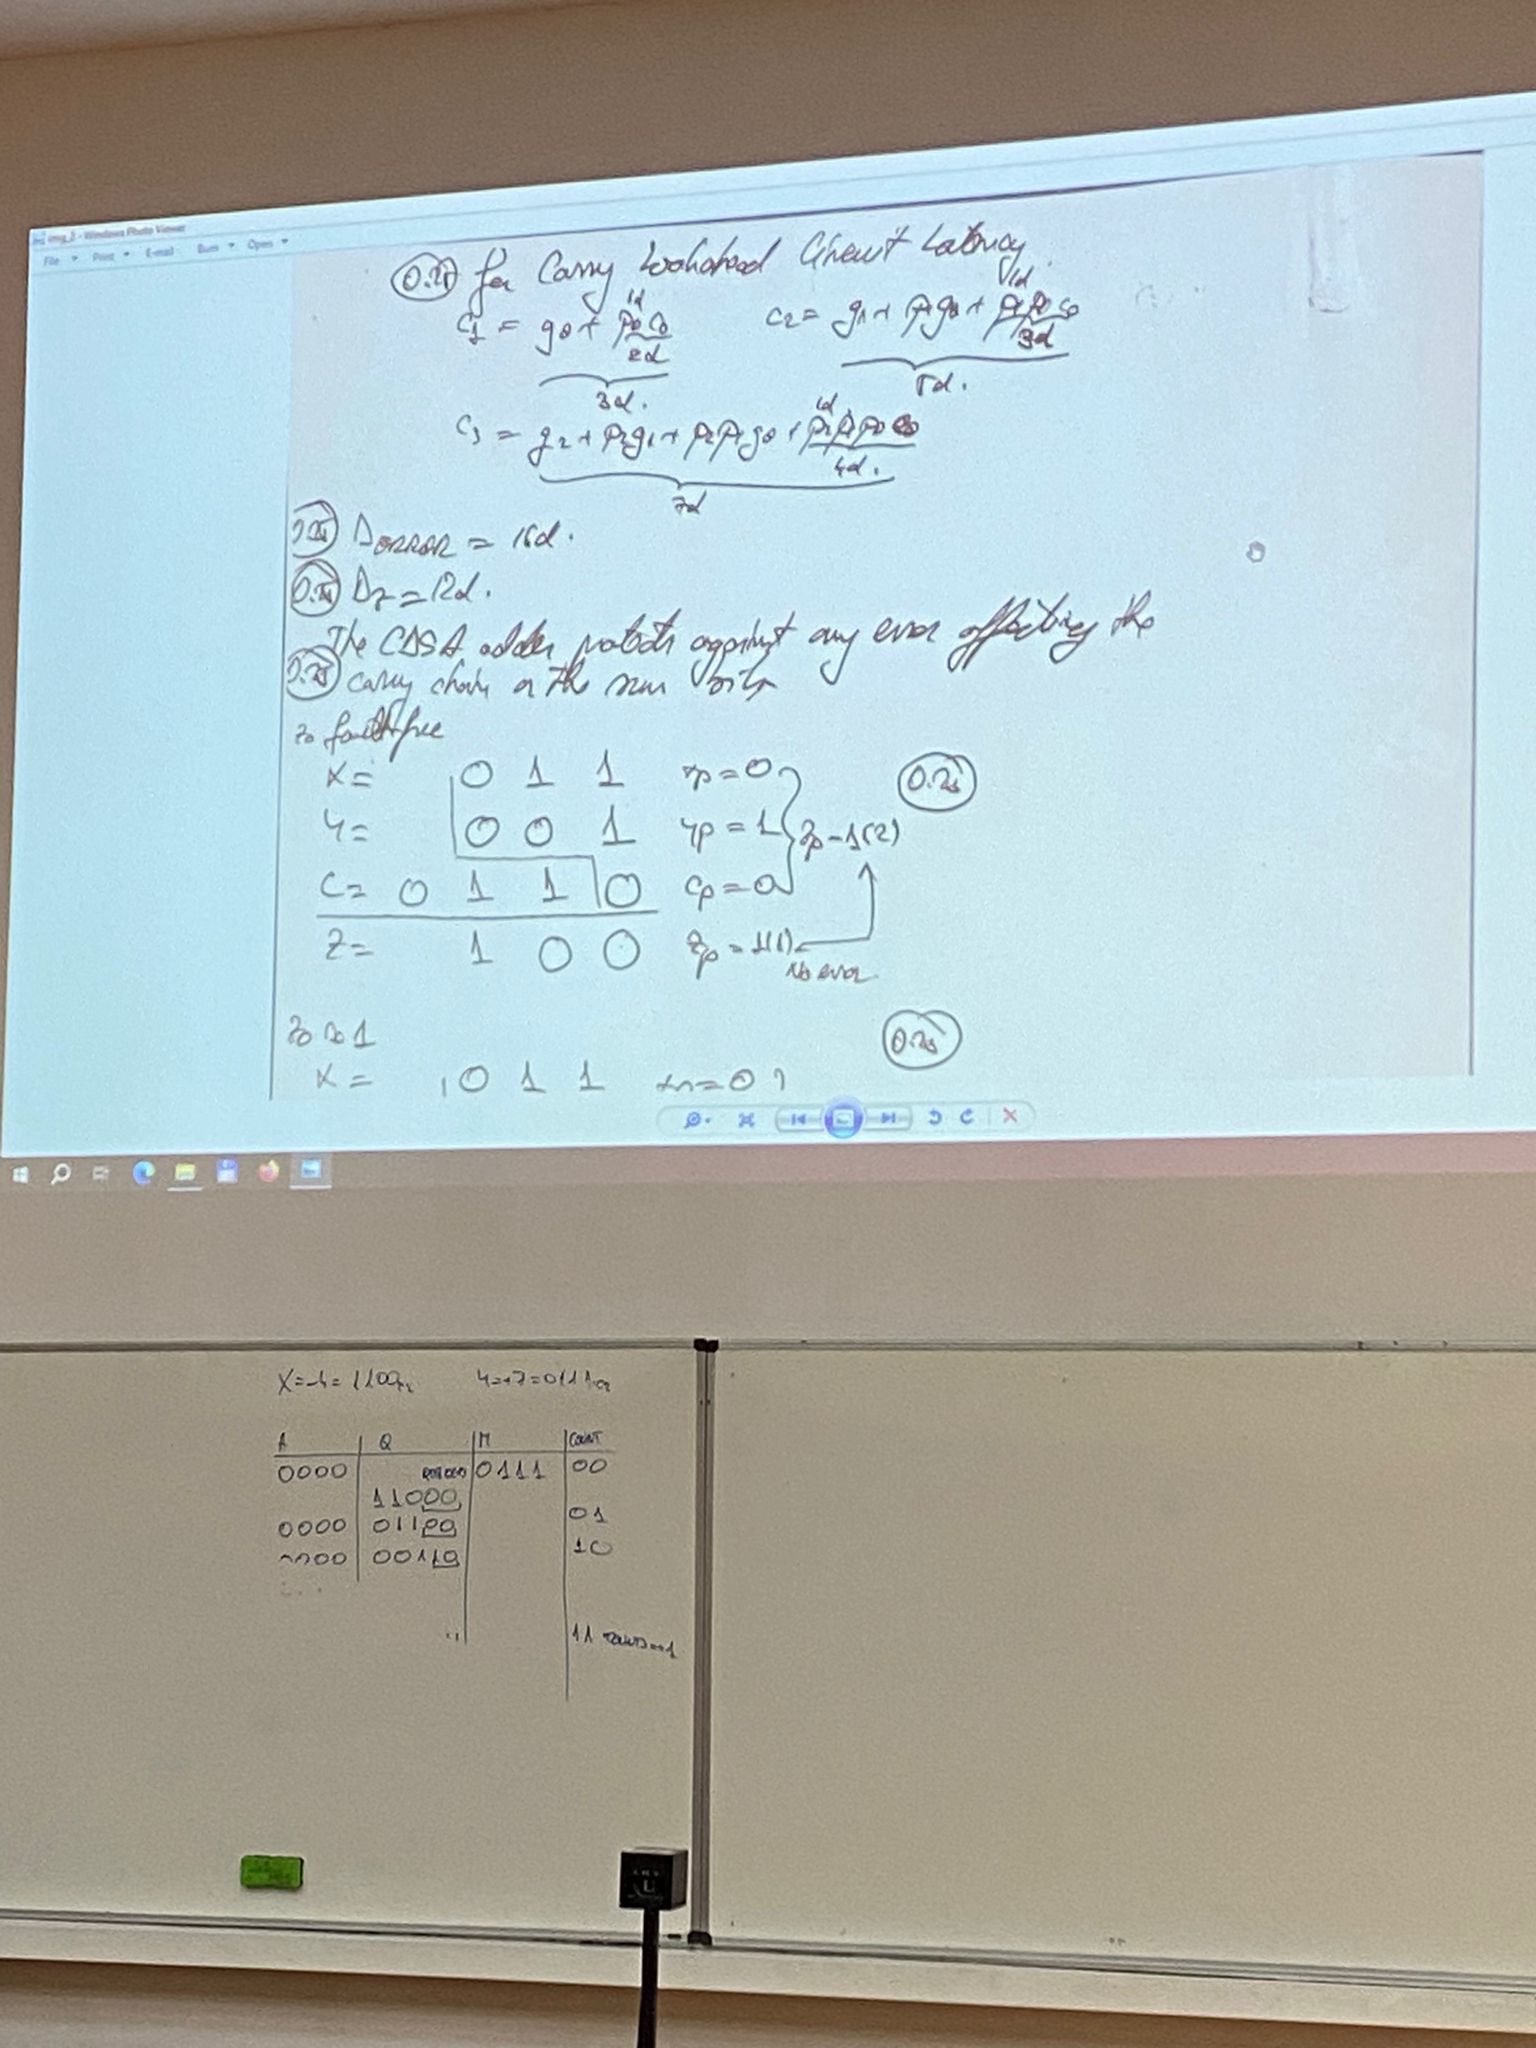 img_2 - Windows Photo Viewer
File Print E-mail Burn Open
0.25 for Carry Lookahead Circuit Latency
1d 1d
c1 = g0 + p0 c0 c2 = g1 + p1g0 + p1p0 c0
2d 3d
3d. 5d.
1d
c3 = g2 + p2g1 + p2p1g0 + p2p1p0 c0
4d.
7d
0.25 DERROR = 16d.
0.25 Dz = 12d.
The adder protects against any error affecting the
0.25 carry chain or the sum bits
z0 fault free
X = 0 1 1 xp = 0 0.25
Y = 0 0 1 yp = 1 zp = 1(2)
C = 0 1 1 0 cp = 0
Z = 1 0 0 zp = 1(1)
No error
z0 1
0.25
X = 0 1 1 = 0
X=-4=1100C2 Y=+7=0111C2
A Q M COUNT
0000 0111 00
11000
0000 01100 01
0000 00110 10
...
11